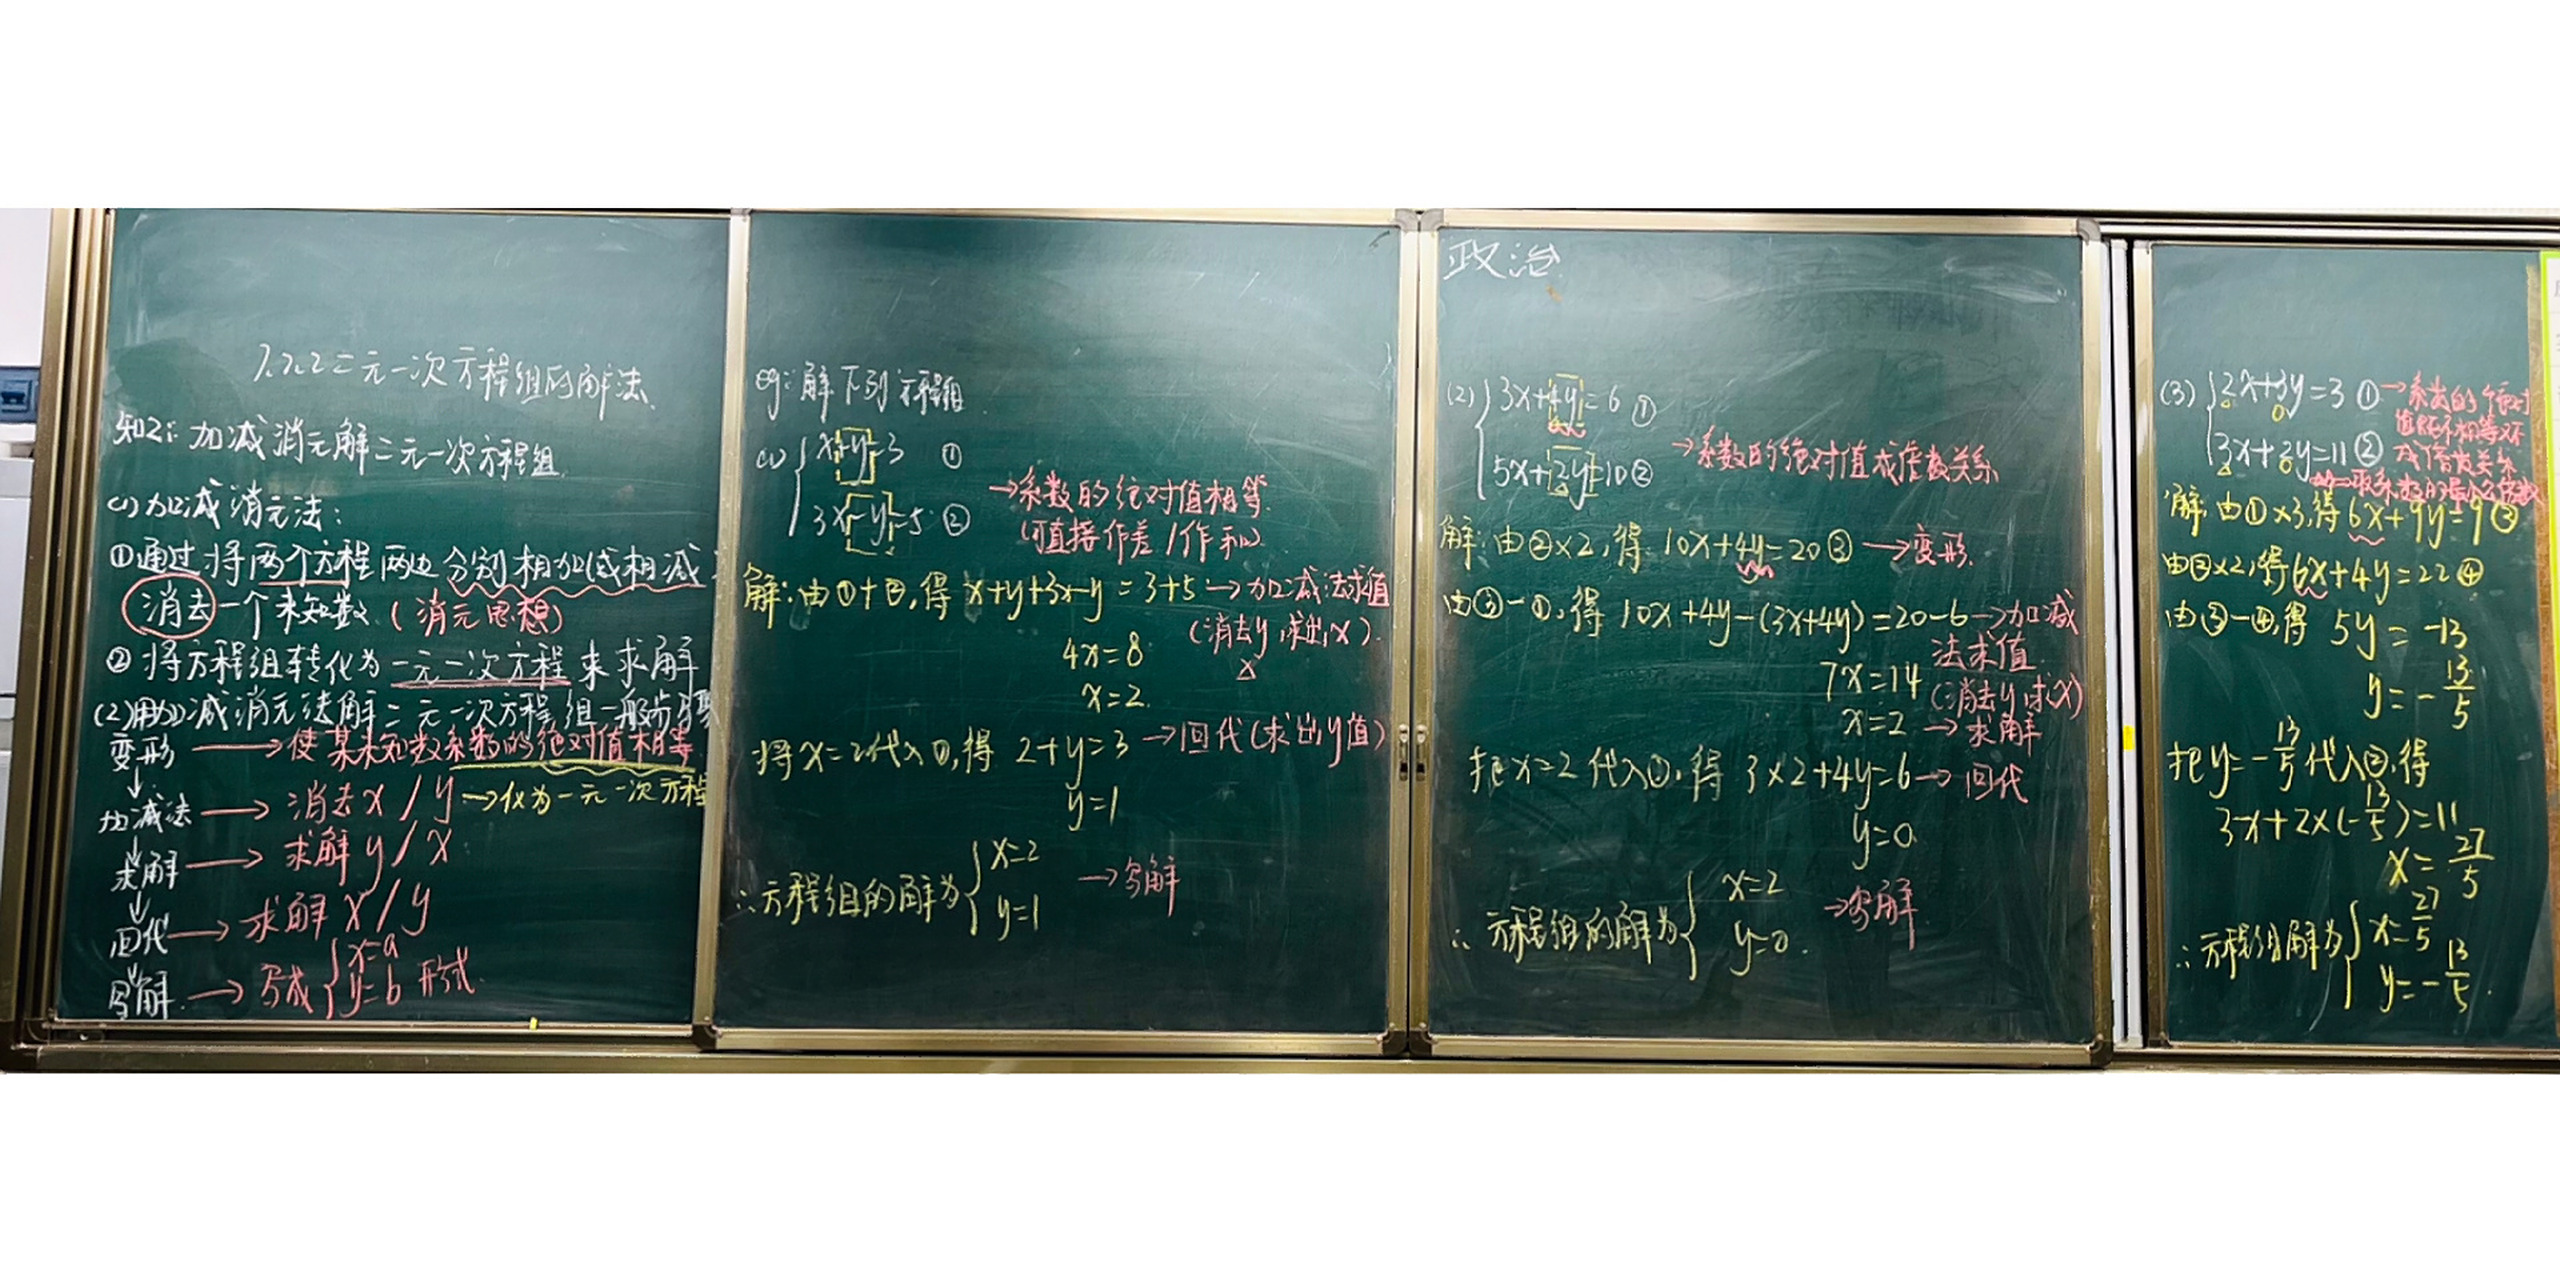 7.2.2二元一次方程组的解法
知2: 加减消元解二元一次方程组
(1)加减消元法:
①通过将两个方程两边分别相加(或相减)
消去一个未知数.(消元思想)
②将方程组转化为一元一次方程来求解
(2)用加减消元法解二元一次方程组一般步骤
变形→使某未知数系数的绝对值相等
↓
加减法→消去x/y→化为一元一次方程
↓
求解→求解y/x
↓
回代→求解x/y
↓
写解→写成{x=a y=b 形式.
eg:解下列方程组
(1){x+y=3 ①
3x-y=5 ②
→系数的绝对值相等
(可直接作差/作和)
解:由①+②,得 x+y+3x-y=3+5→加减法求值
(消去y,求出x).
4x=8
x=2
将x=2代入①,得 2+y=3→回代(求出y值)
y=1
∴方程组的解为{x=2 →写解
y=1
政治
(2){3x+4y=6 ①
5x+2y=10②
→系数的绝对值成倍数关系
解:由②×2,得 10x+4y=20③→变形
由③-①,得 10x+4y-(3x+4y)=20-6→加减
法求值
7x=14 (消去y,求x)
x=2→求解
把x=2代入①,得 3×2+4y=6→回代
y=0
∴方程组的解为{x=2 →写解
y=0.
(3){2x+3y=3 ①→系数的绝对
值既不相等又不
3x+2y=11② 成倍数关系
→取系数的最小公倍数
解:由①×3,得6x+9y=9③
由②×2,得6x+4y=22④
由③-④,得 5y=-13
y=-13/5
把y=-13/5代入②,得
3x+2×(-13/5)=11
x=27/5
∴方程组解为{x=27/5
y=-13/5.